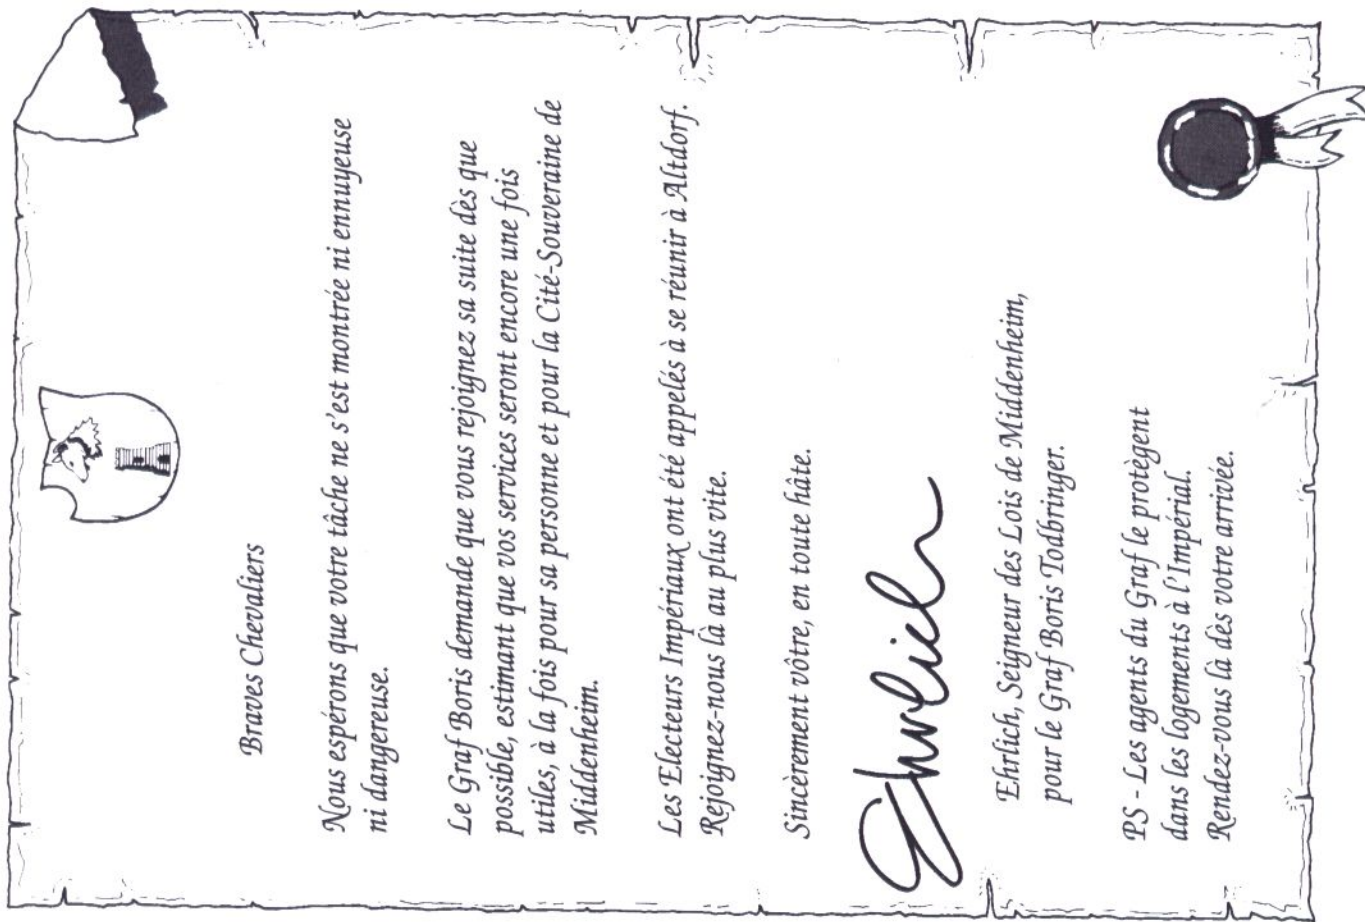 Braves Chevaliers
Nous espérons que votre tâche ne s'est montrée ni ennuyeuse
ni dangereuse.
Le Graf Boris demande que vous rejoignez sa suite dès que
possible, estimant que vos services seront encore une fois
utiles, à la fois pour sa personne et pour la Cité-Souveraine de
Middenheim.
Les Electeurs Impériaux ont été appelés à se réunir à Altdorf.
Rejoignez-nous là au plus vite.
Sincèrement vôtre, en toute hâte.
Ehrlich
Ehrlich, Seigneur des Lois de Middenheim,
pour le Graf Boris Todbringer.
PS - Les agents du Graf le protègent
dans les logements à l'Impérial.
Rendez-vous là dès votre arrivée.